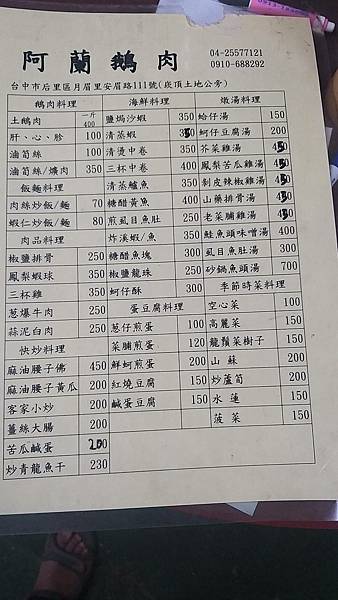 阿蘭鵝肉
04-25577121
0910-688292
台中市后里區月眉里安眉路111號(崁頂土地公旁)
鵝肉料理
土鵝肉 一斤400
肝、心、胗 100
滷筍絲 100
滷筍絲/爌肉 350
飯麵料理
肉絲炒飯/麵 70
蝦仁炒飯/麵 80
肉品料理
椒鹽排骨 250
鳳梨蝦球 350
三杯雞 350
蔥爆牛肉 250
蒜泥白肉 250
快炒料理
麻油腰子佛 450
麻油腰子黃瓜 200
客家小炒 200
薑絲大腸 200
苦瓜鹹蛋 200
炒青龍魚干 230
海鮮料理
鹽焗沙蝦 350
清蒸蝦 350
清燙中卷 350
三杯中卷 400
清蒸鱸魚 350
糖醋黃魚 400
煎虱目魚肚 200
炸溪蝦/魚 350
糖醋魚塊 300
椒鹽龍珠 250
蚵仔酥 300
蛋豆腐料理
蔥仔煎蛋 100
菜脯煎蛋 120
鮮蚵煎蛋 200
紅燒豆腐 150
鹹蛋豆腐 150
燉湯料理
蛤仔湯 150
蚵仔豆腐湯 200
芥菜雞湯
鳳梨苦瓜雞湯
剝皮辣椒雞湯
山藥排骨湯
老菜脯雞湯
鮭魚頭味噌湯 400
虱目魚肚湯 300
砂鍋魚頭湯 700
季節時菜料理
空心菜 100
高麗菜 150
龍鬚菜樹子 150
山蘇 200
炒蘆筍 200
水蓮 150
菠菜 150